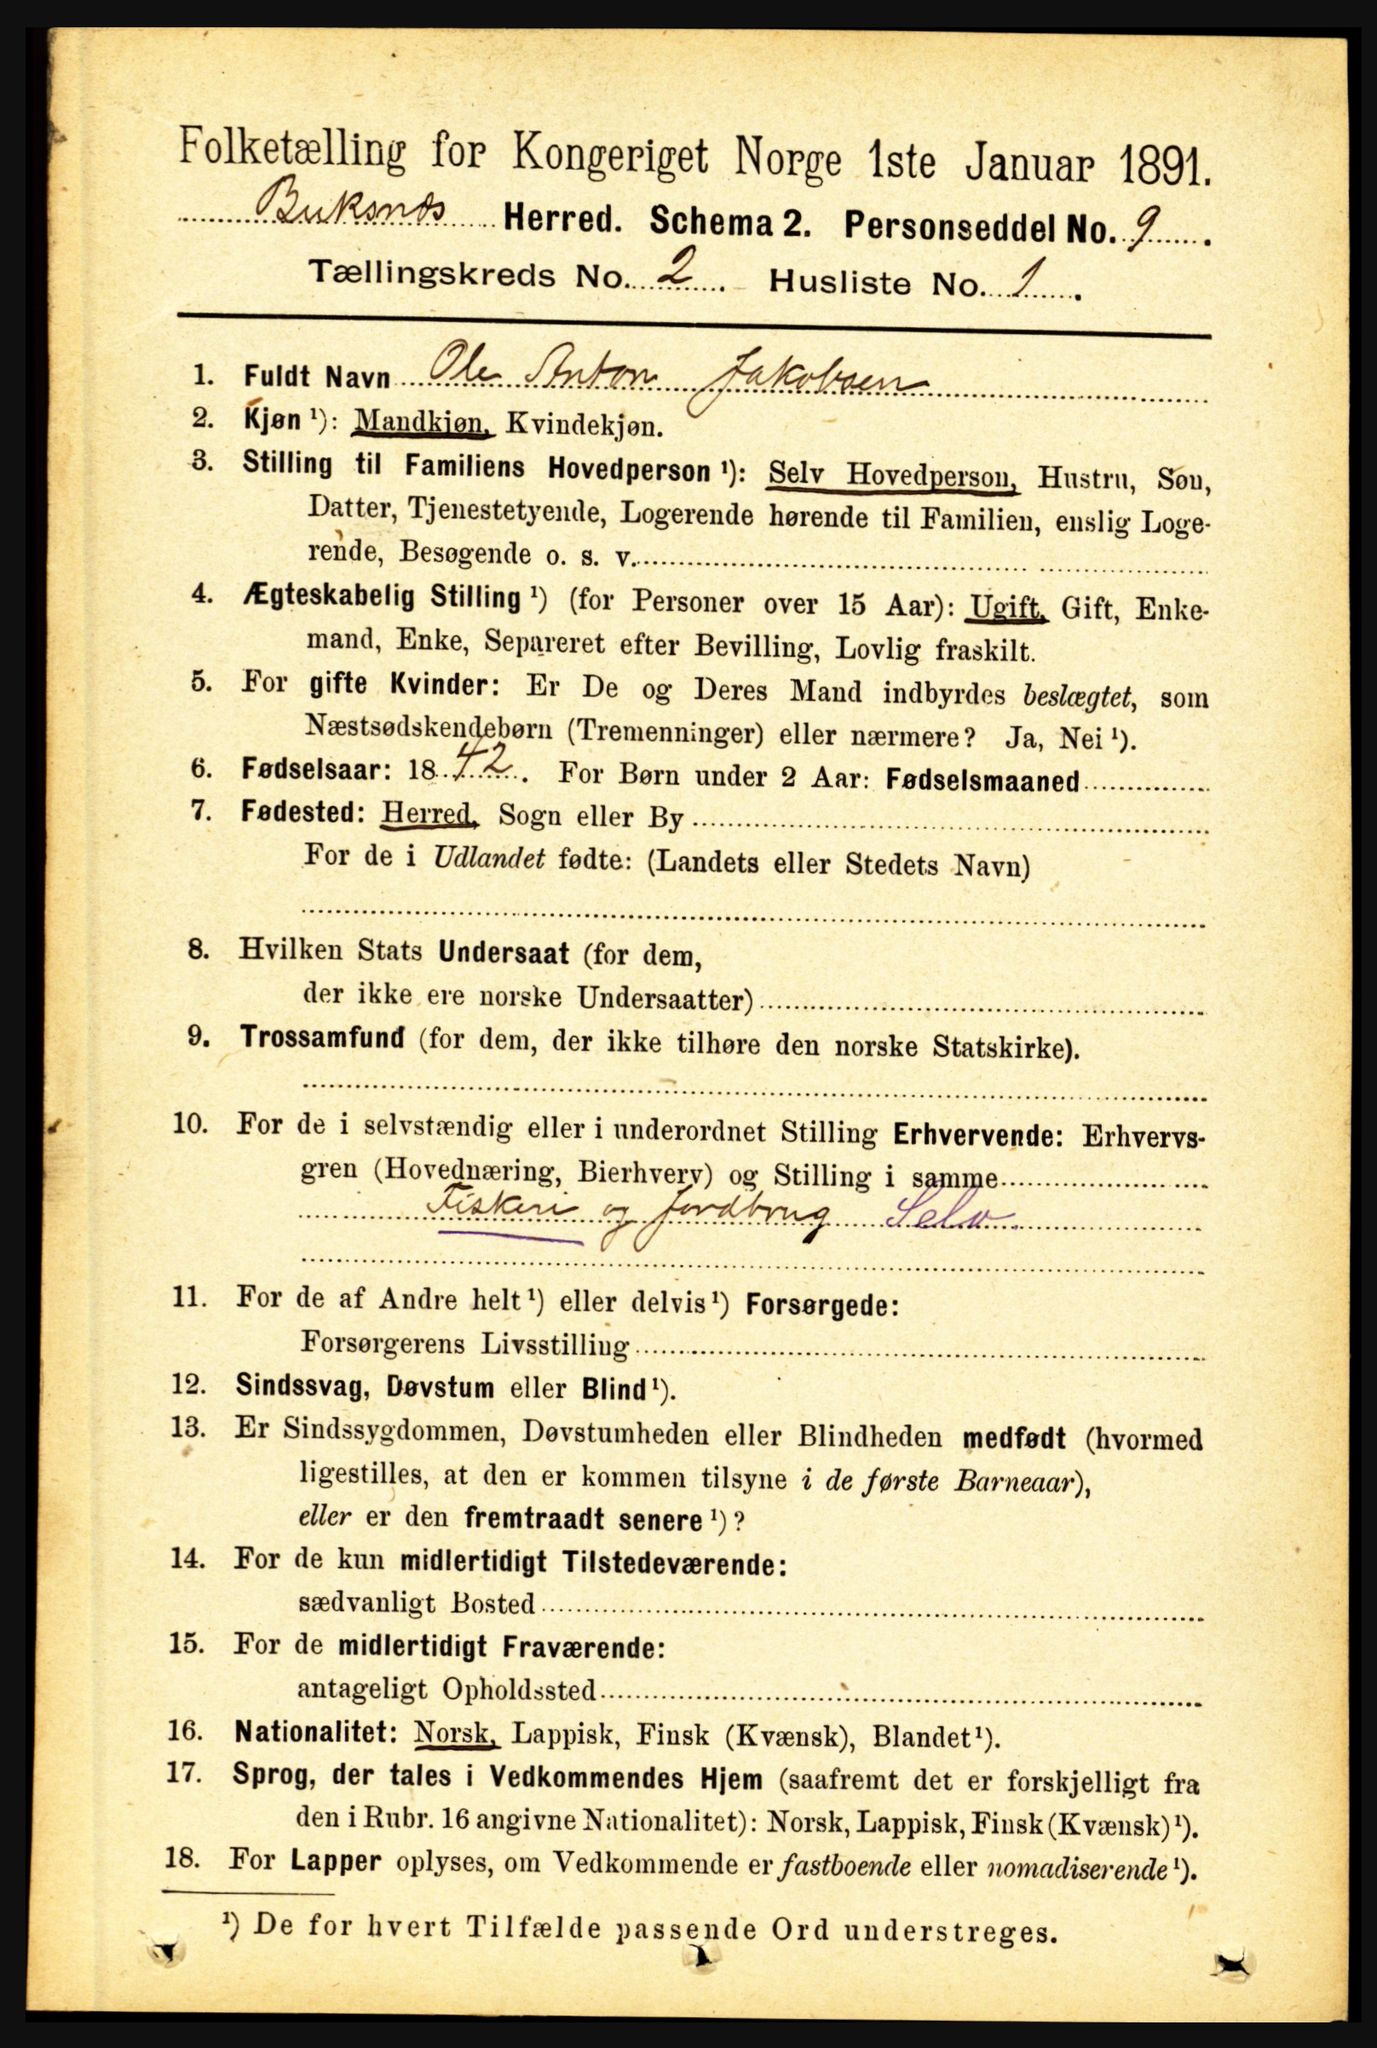 Folketælling for Kongeriget Norge 1ste Januar 1891.
Buksnæs Herred. Schema 2. Personseddel No. 9.
Tællingskreds No. 2. Husliste No. 1.
1. Fuldt Navn Ole Anton Jakobsen
2. Kjøn ¹): Mandkjøn, Kvindekjøn.
3. Stilling til Familiens Hovedperson ¹): Selv Hovedperson, Hustru, Søn,
Datter, Tjenestetyende, Logerende hørende til Familien, enslig Loge-
rende, Besøgende o. s. v.
4. Ægteskabelig Stilling ¹) (for Personer over 15 Aar): Ugift, Gift, Enke-
mand, Enke, Separeret efter Bevilling, Lovlig fraskilt.
5. For gifte Kvinder: Er De og Deres Mand indbyrdes beslægtet, som
Næstsødskendebørn (Tremenninger) eller nærmere? Ja, Nei ¹).
6. Fødselsaar: 1842. For Børn under 2 Aar: Fødselsmaaned
7. Fødested: Herred, Sogn eller By
For de i Udlandet fødte: (Landets eller Stedets Navn)
8. Hvilken Stats Undersaat (for dem,
der ikke ere norske Undersaatter)
9. Trossamfund (for dem, der ikke tilhøre den norske Statskirke).
10. For de i selvstændig eller i underordnet Stilling Erhvervende: Erhvervs-
gren (Hovednæring, Bierhverv) og Stilling i samme
Fiskeri og Jordbrug Selv.
11. For de af Andre helt ¹) eller delvis ¹) Forsørgede:
Forsørgerens Livsstilling
12. Sindssvag, Døvstum eller Blind ¹).
13. Er Sindssygdommen, Døvstumheden eller Blindheden medfødt (hvormed
ligestilles, at den er kommen tilsyne i de første Barneaar),
eller er den fremtraadt senere ¹)?
14. For de kun midlertidigt Tilstedeværende:
sædvanligt Bosted
15. For de midlertidigt Fraværende:
antageligt Opholdssted
16. Nationalitet: Norsk, Lappisk, Finsk (Kvænsk), Blandet ¹).
17. Sprog, der tales i Vedkommendes Hjem (saafremt det er forskjelligt fra
den i Rubr. 16 angivne Nationalitet): Norsk, Lappisk, Finsk (Kvænsk) ¹).
18. For Lapper oplyses, om Vedkommende er fastboende eller nomadiserende ¹).
¹) De for hvert Tilfælde passende Ord understreges.